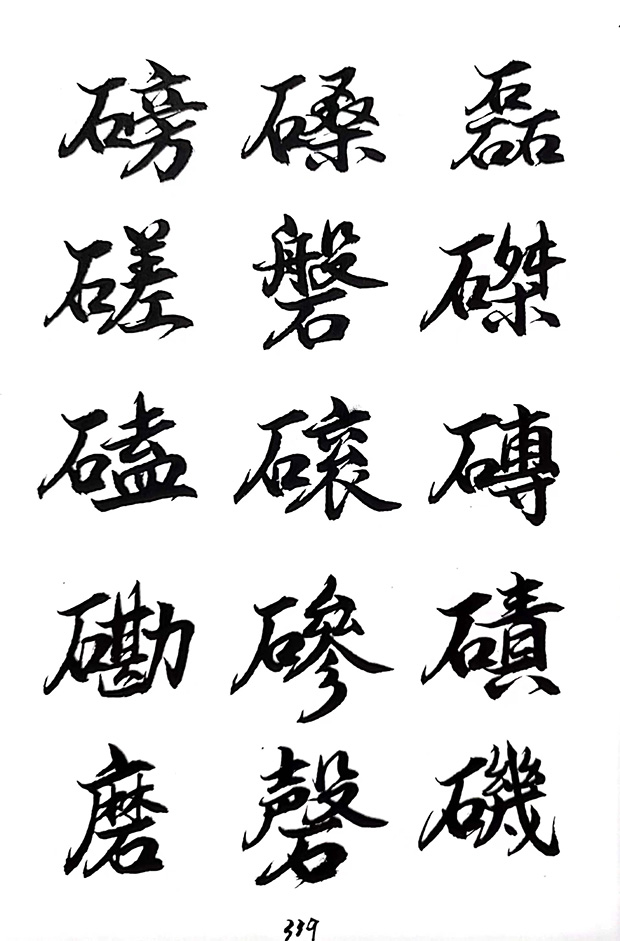 磅磉磊
磋磐磔
磕磙磚
磡磣磧
磨磬磯
339